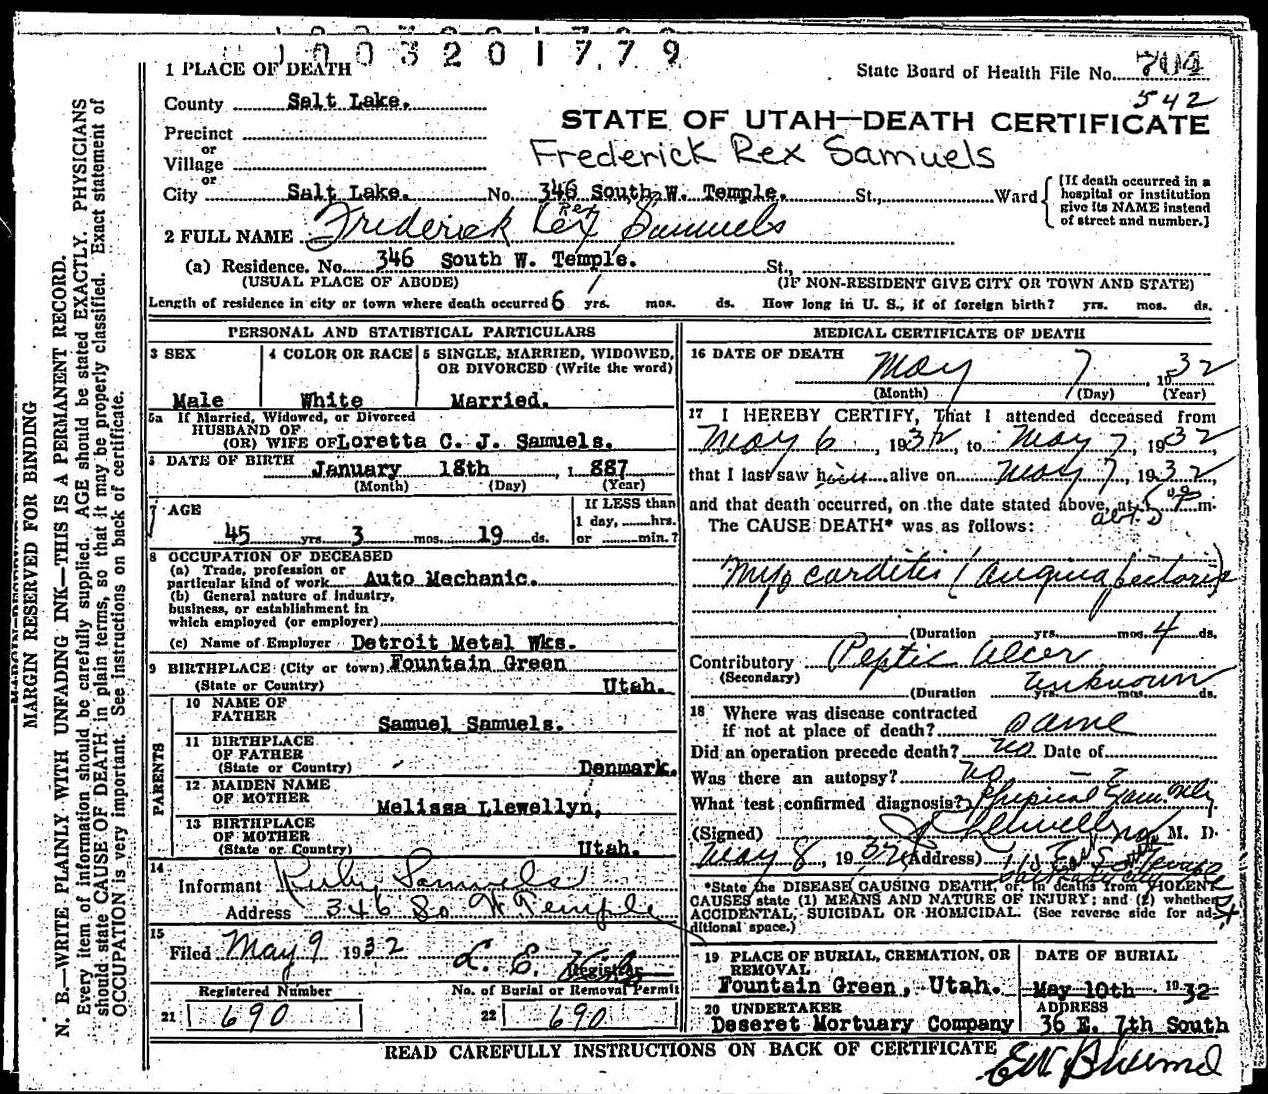 1003201779
1 PLACE OF DEATH
State Board of Health File No. 704
542
County Salt Lake.
STATE OF UTAH—DEATH CERTIFICATE
Precinct
or
Village
Frederick Rex Samuels
or
City Salt Lake. No. 346 South W. Temple. St., Ward
[If death occurred in a
hospital or institution
give its NAME instead
of street and number.]
2 FULL NAME Frederick Rex Samuels
Rex
(a) Residence. No. 346 South W. Temple. St.,
(USUAL PLACE OF ABODE) (IF NON-RESIDENT GIVE CITY OR TOWN AND STATE)
Length of residence in city or town where death occurred 6 yrs. mos. ds. How long in U. S., if of foreign birth? yrs. mos. ds.
PERSONAL AND STATISTICAL PARTICULARS
3 SEX 4 COLOR OR RACE 5 SINGLE, MARRIED, WIDOWED,
OR DIVORCED (Write the word)
Male White Married.
5a If Married, Widowed, or Divorced
HUSBAND OF
(OR) WIFE OF Loretta C. J. Samuels.
DATE OF BIRTH January 18th 1 887
(Month) (Day) (Year)
7 AGE
If LESS than
1 day, hrs.
or min.?
45 yrs. 3 mos. 19 ds.
8 OCCUPATION OF DECEASED
(a) Trade, profession or
particular kind of work Auto Mechanic.
(b) General nature of industry,
business, or establishment in
which employed (or employer)
(c) Name of Employer Detroit Metal Wks.
9 BIRTHPLACE (City or town) Fountain Green
(State or Country) Utah.
PARENTS
10 NAME OF
FATHER Samuel Samuels.
11 BIRTHPLACE
OF FATHER
(State or Country) Denmark.
12 MAIDEN NAME
OF MOTHER Melissa Llewellyn,
13 BIRTHPLACE
OF MOTHER
(State or Country) Utah.
14
Informant Ruby Samuels
Address 346 So W Temple
15
Filed May 9 1932 L. E.
Registrar
Registered Number No. of Burial or Removal Permit
21 690 22 690
MEDICAL CERTIFICATE OF DEATH
16 DATE OF DEATH May 7, 1932
(Month) (Day) (Year)
17 I HEREBY CERTIFY, That I attended deceased from
May 6, 1932, to May 7, 1932,
that I last saw him alive on May 7, 1932,
and that death occurred, on the date stated above, at m.
abt. 5
The CAUSE DEATH* was as follows:
Myocarditis (Angina Pectoris)
(Duration yrs. mos. 4 ds.
Contributory Peptic Ulcer
(Secondary)
(Duration Unknown yrs. mos. ds.
18 Where was disease contracted
if not at place of death? same
Did an operation precede death? no Date of
Was there an autopsy? No
What test confirmed diagnosis? Physical Exam. only
(Signed) M. D.
May 8, 1932 (Address)
*State the DISEASE CAUSING DEATH, or, in deaths from VIOLENT
CAUSES state (1) MEANS AND NATURE OF INJURY; and (2) whether
ACCIDENTAL, SUICIDAL OR HOMICIDAL. (See reverse side for ad-
ditional space.)
19 PLACE OF BURIAL, CREMATION, OR
REMOVAL
Fountain Green, Utah.
DATE OF BURIAL
May 10th 1932
20 UNDERTAKER
Deseret Mortuary Company
ADDRESS
36 E. 7th South
READ CAREFULLY INSTRUCTIONS ON BACK OF CERTIFICATE
MARGIN RESERVED FOR BINDING
N. B.—WRITE PLAINLY WITH UNFADING INK—THIS IS A PERMANENT RECORD.
Every item of information should be carefully supplied. AGE should be stated EXACTLY. PHYSICIANS
should state CAUSE OF DEATH in plain terms, so that it may be properly classified. Exact statement of
OCCUPATION is very important. See instructions on back of certificate.